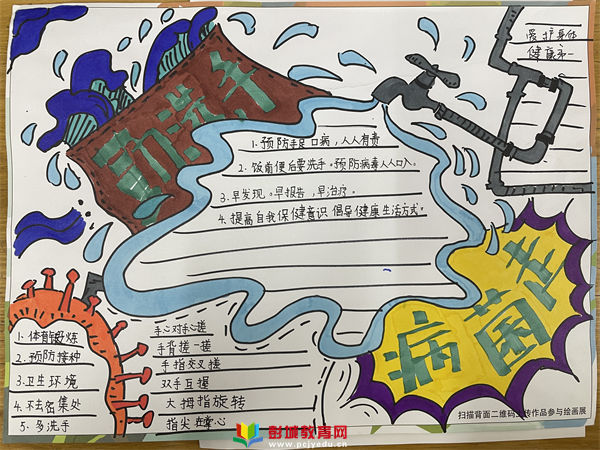 勤洗手
爱护身体
健康第一
1. 预防手足口病,人人有责
2. 饭前便后要洗手。预防病毒人人口入。
3. 早发现。早报告,早治疗。
4. 提高自我保健意识 倡导健康生活方式。
病菌走
1. 体育锻炼
2. 预防接种
3. 卫生环境
4. 不去密集处
5. 多洗手
手心对手心搓
手背搓一搓
手指交叉搓
双手互握
大拇指旋转
指尖在掌心
扫描背面二维码上传作品参与绘画展
彭城教育网
www.pcjyedu.cn